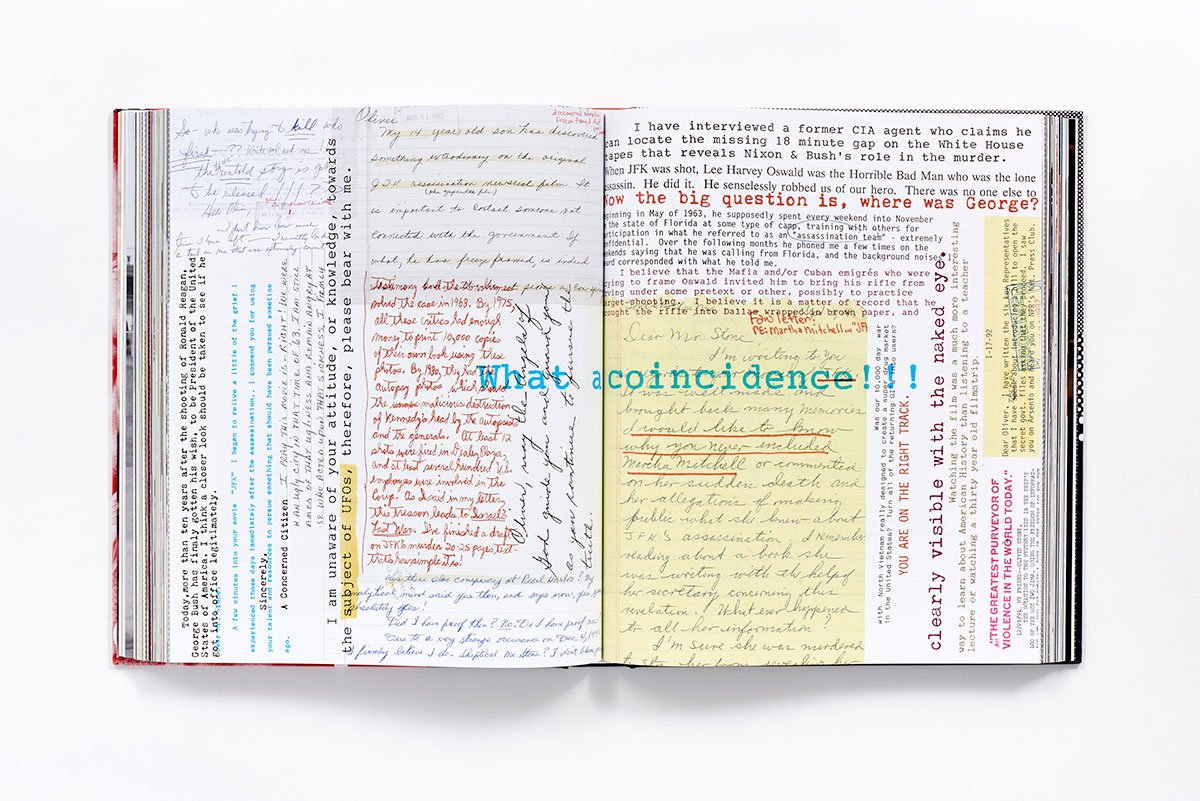 So - who was trying to kill who
first - ?? White
untold story is
to be released !!!?
Today, more than ten years after the shooting of Ronald Reagan,
George Bush has finaly gotten his wish, to be President of the United
States of America. I think a closer look should be taken to see if he
got into office legitimately.
Sincerely,
A Concerned Citizen
A few minutes into your movie "JFK" I began to relive a little of the grief I
experienced those days immediately after the assassination. I commend you for using
your talent and resources to persue something that should have been persued sometime
ago.
I PRAY THIS MOVIE IS RIGHT! WE WERE
AN UGLY CITY IN THAT TIME OF 63. I AM STILL
I am unaware of your attitude, or knowledge, towards
the subject of UFOs, therefore, please bear with me.
Oliver
AUG 31 1992
My 14 year old son has discovered
something extraordinary on the original
JFK assassination newsreel film. It
(the zapruder film)
is important to contact someone not
connected with the government. If
what he has freeze framed is indeed
solved the case in 1963. By 1975,
all these critics had enough
money to print 10,000 copies
of their own book using these
photos. By 1980, they had
autopsy photos which
the malicious destruction
of Kennedy's head by the autopsists
and the generals. At least 12
shots were fired in Dealey Plaza,
and at least several hundred U.S.
employees were involved in the
Coup. As I said in my letter,
this treason leads to Israel's
Last War. I've finished a draft
on JFK's murder 20-25 pages test-
thats how simple it is!
Oliver, my the Almighty
God guide you and yours
as you continue to pursue the
truth.
Was there also conspiracy at Pearl Harbor? My
analytical mind said yes then, and says now, yes, yes
absolutely yes!
Did I have proof then? No. Do I have proof now
Due to a very strange occurance on Dec. 4, 1941
I firmly believe I do. Skeptical Mr. Stone? I don't blame
What a coincidence!!!
I have interviewed a former CIA agent who claims he
can locate the missing 18 minute gap on the White House
tapes that reveals Nixon & Bush's role in the murder.
When JFK was shot, Lee Harvey Oswald was the Horrible Bad Man who was the lone
assassin. He did it. He senselessly robbed us of our hero. There was no one else to
Now the big question is, where was George?
Beginning in May of 1963, he supposedly spent every weekend into November
in the state of Florida at some type of camp, training with others for
participation in what he referred to as an "assassination team" - extremely
confidential. Over the following months he phoned me a few times on the
weekends saying that he was calling from Florida, and the background noises
had corresponded with what he told me.
I believe that the Mafia and/or Cuban emigrés who were
trying to frame Oswald invited him to bring his rifle from
Irving under some pretext or other, possibly to practice
target-shooting. I believe it is a matter of record that he
brought the rifle into Dallas wrapped in brown paper, and
Fax letter!
RE: Martha Mitchell
Dear Mr. Stone,
I'm writing to you
was well made and
brought back many memories
I would like to know
why you never included
Martha Mitchell or commented
on her sudden death and
her allegations of making
public what she knew about
JFK's assassination. I remember
reading about a book she
was writing with the help of
her secretary concerning this
revelation. What ever happened
to all her information?
I'm sure she was murdered
Was our 10,000 day war
with North Vietnam really designed to create a super drug market
in the United States? Turn all of the returning GIs into users?
YOU ARE ON THE RIGHT TRACK.
clearly visible with the naked eye.
Watching the film was a much more interesting
way to learn about American History than listening to a teacher
lecture or watching a thirty year old filmstrip.
1-17-92
Dear Oliver, I have written the six Representatives
that I have about introducing a bill to open the
secret govt. files asking that they proceed. I saw
you on Arsenio and heard you on NPR's Nat. Press Club.
"THE GREATEST PURVEYOR OF
VIOLENCE IN THE WORLD TODAY."